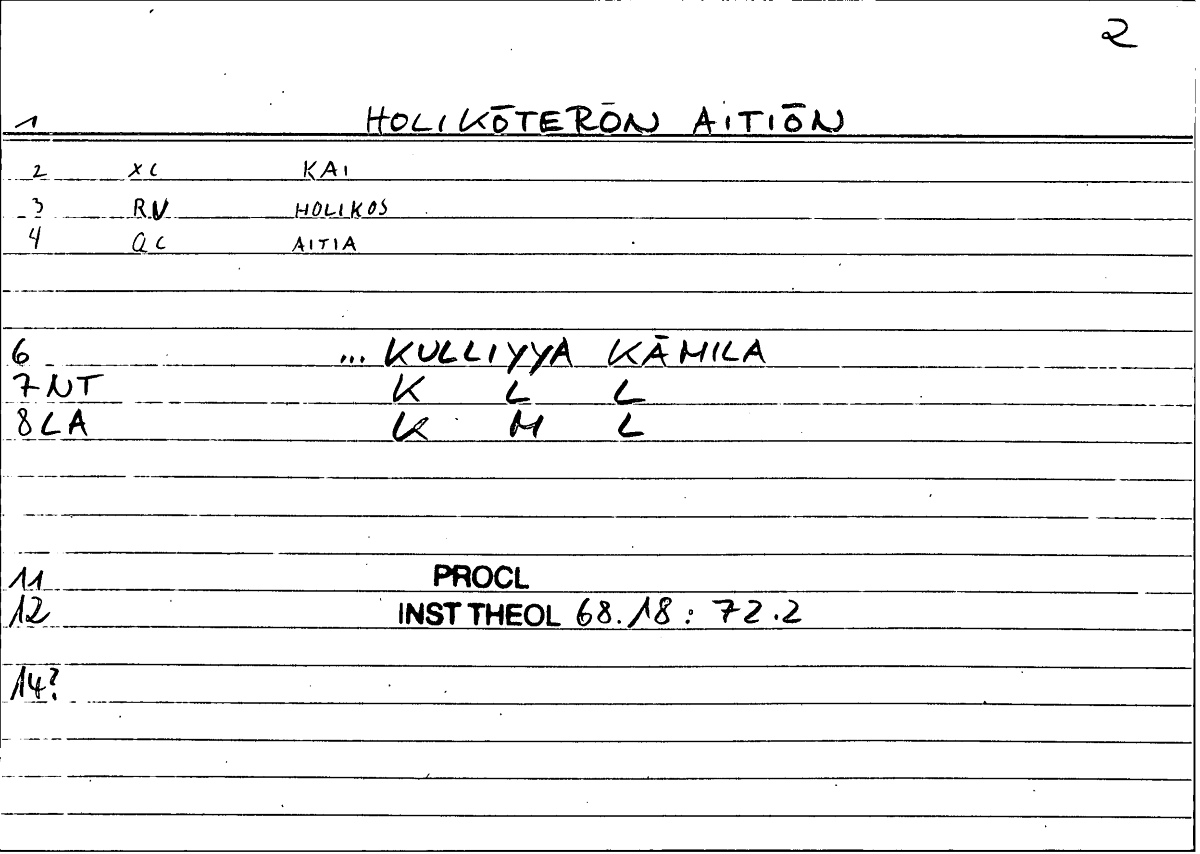 2
1 HOLIKŌTERŌN AITIŌN
2 XC KAI
3 RN HOLIKOS
4 QC AITIA
6 ... KULLIYYA KĀMILA
7 NT K L L
8 LA K M L
11 PROCL
12 INST THEOL 68.18 : 72.2
14?